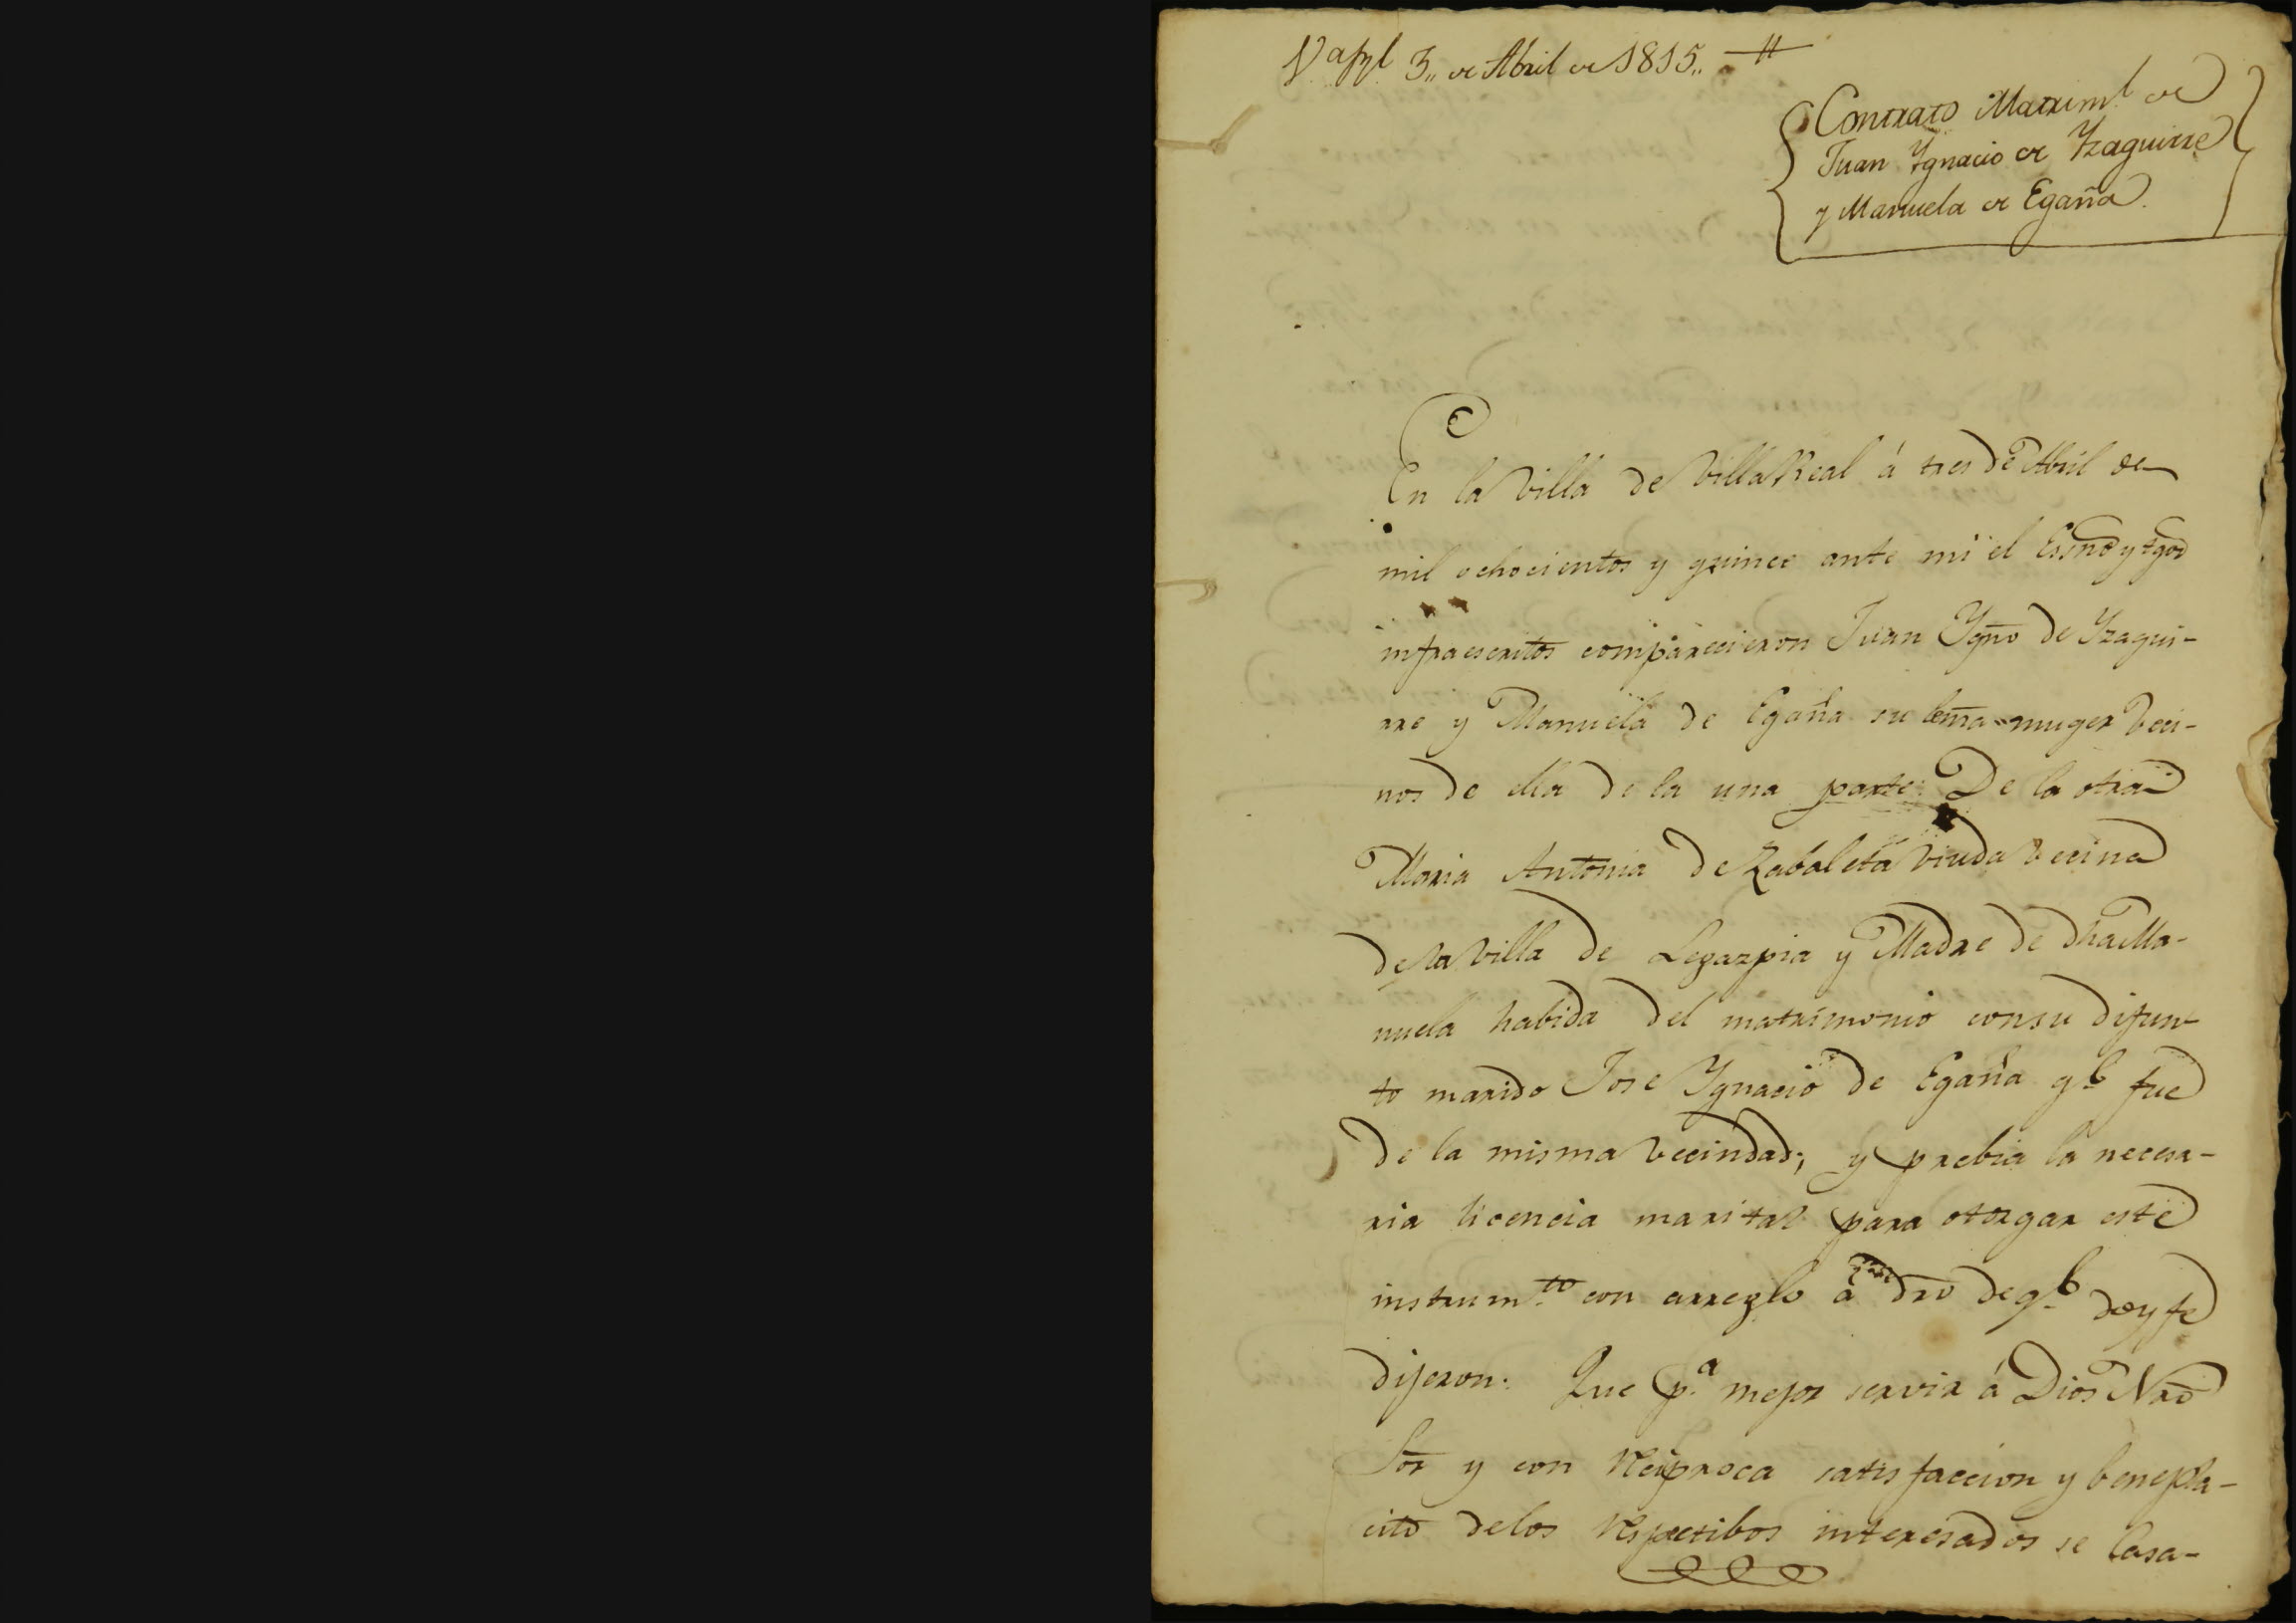 3,, de Abril de 1815,,
Contrato Matriml. de
Juan Ygnacio de Yzaguirre
y Manuela de Egaña.
En la Villa de VillaReal á tres de Abril de
mil ochocientos y quinze ante mi el Essno y tgos
infraescritos comparecieron Juan Ygno de Yzagui-
rre y Manuela de Egaña su lexma muger Veci-
nos de ella de la una parte: De la otra
Maria Antonia de Zabaleta Viuda Vecina
de la Villa de Legazpia y Madre de dha Ma-
nuela habida del matrimonio con su difun-
to marido Jose Ygnacio de Egaña qe. fue
de la misma Vecindad; y prebia la necesa-
ria licencia marital para otorgar este
instrum.to con arreglo á dro de qe. doy fe
dijeron: Que p.a mejor servir á Dios Nro
Sor y con Reciproca satisfaccion y benepla-
cito de los Respectibos interesados se Casa-